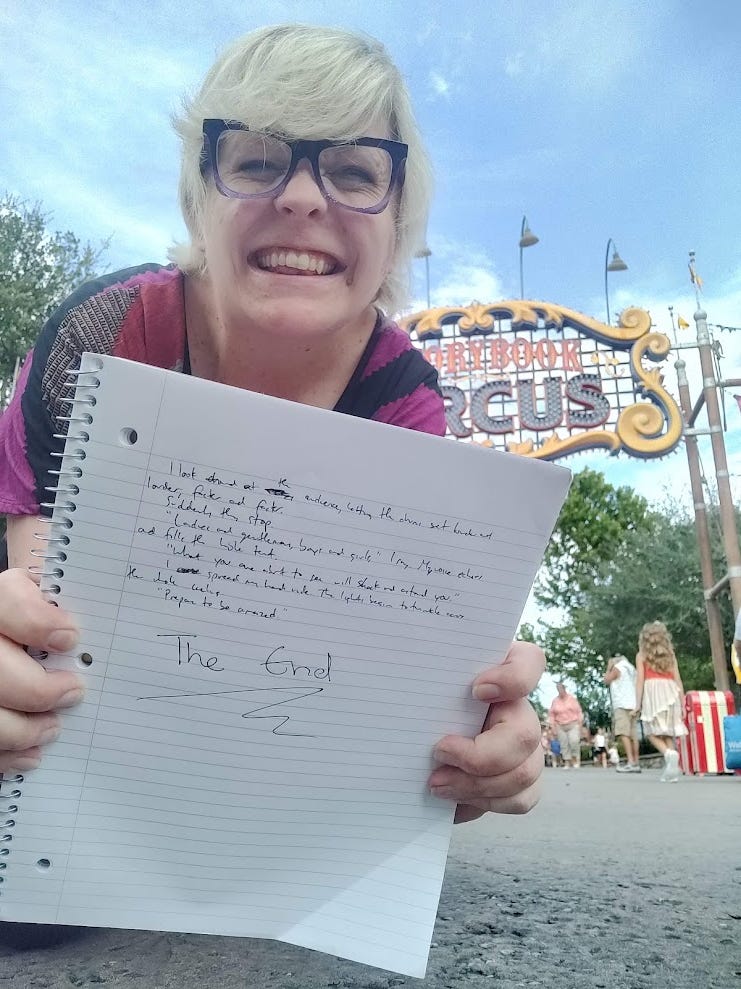 ORYBOOK
RCUS
I look around at the audience, letting the drums set
louder, faster and faster.
Suddenly, they stop.
"Ladies and gentlemen, boys and girls," I say. My voice echoes
and fills the whole tent.
"What you are about to see will shock and astound you."
I spread my hands wide. The lights begin to twinkle across
the whole ceiling.
"Prepare to be amazed."
The End